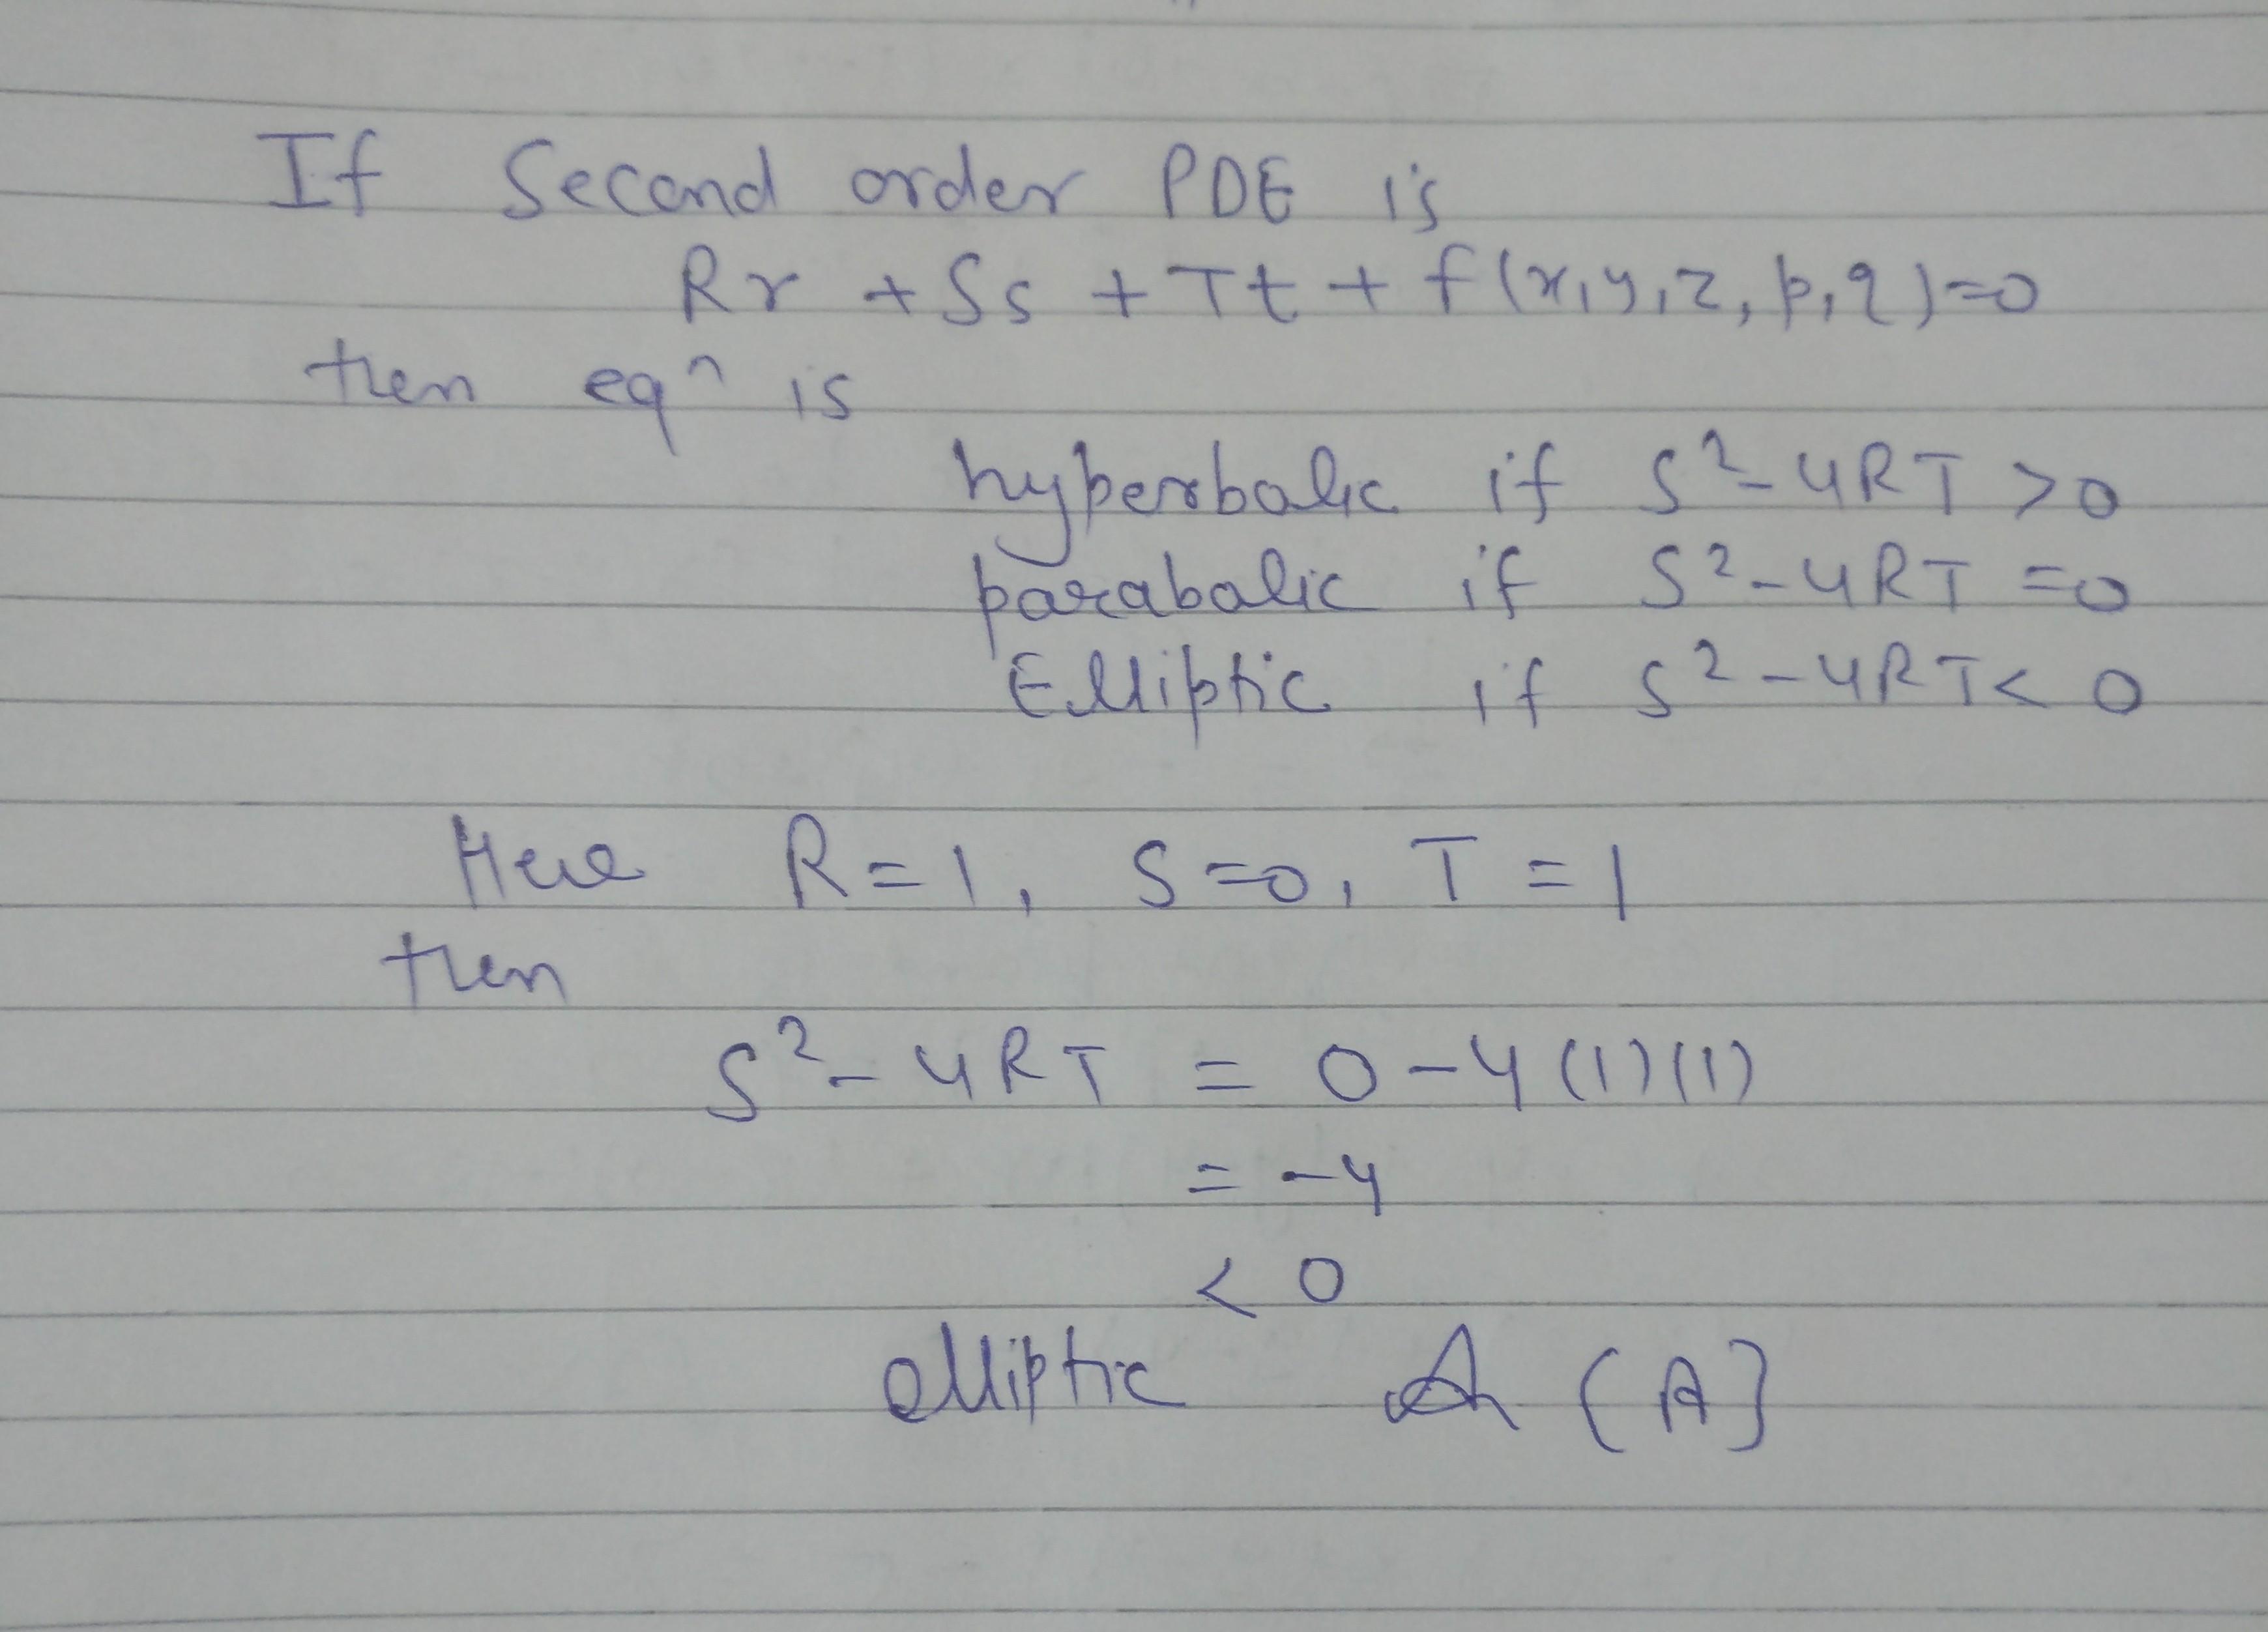 If Second order PDE is
Rr + Ss + Tt + f(x,y,z,p,q)=0
then eqⁿ is
hyperbolic if S²-4RT >0
parabolic if S²-4RT =0
Elliptic if S²-4RT< 0
Here R=1, S=0, T=1
then
S²-4RT = 0-4(1)(1)
= -4
< 0
elliptic (A)